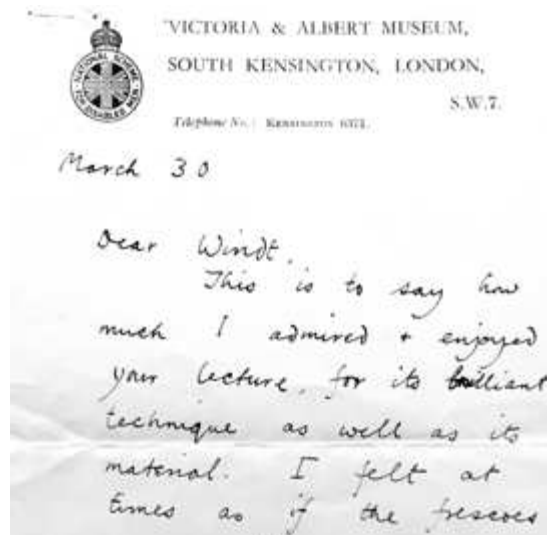 VICTORIA & ALBERT MUSEUM,
SOUTH KENSINGTON, LONDON,
S.W.7.
NATIONAL SCHEME
FOR DISABLED MEN
Telephone No.: KENSINGTON 6371.
March 30
Dear Windt,
This is to say how
much I admired + enjoyed
your lecture, for its brilliant
technique as well as its
material. I felt at
times as if the frescoes